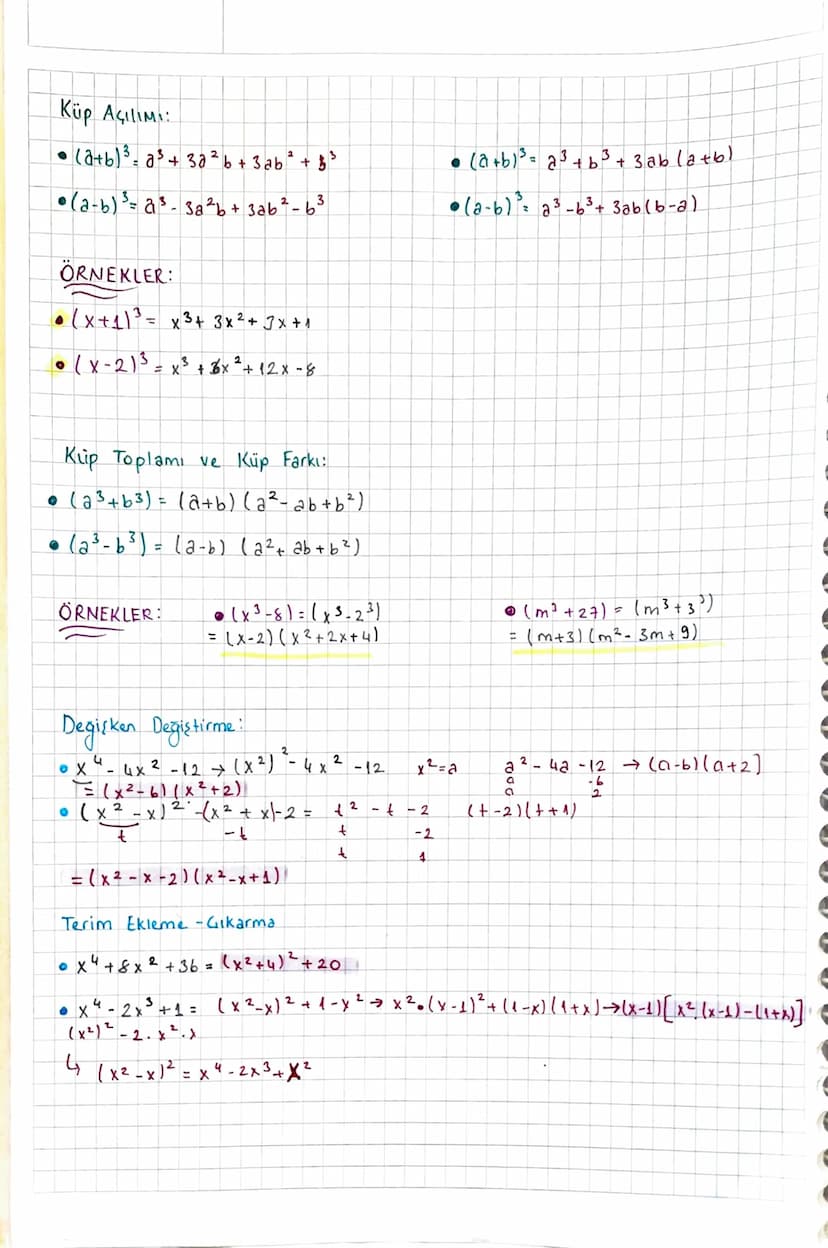 Küp Açılımı:
• (a+b)³ = a³ + 3a²b + 3ab² + b³
• (a+b)³ = a³ + b³ + 3ab (a+b)
• (a-b)³ = a³ - 3a²b + 3ab² - b³
• (a-b)³ = a³ - b³ + 3ab (b-a)
ÖRNEKLER:
• (x+1)³ = x³ + 3x² + 3x + 1
• (x-2)³ = x³ + 6x² + 12x - 8
Küp Toplamı ve Küp Farkı:
• (a³+b³) = (a+b) (a² - ab + b²)
• (a³-b³) = (a-b) (a² + ab + b²)
ÖRNEKLER:
• (x³-8) = (x³-2³)
= (x-2) (x²+2x+4)
• (m³+27) = (m³+3³)
= (m+3) (m² - 3m + 9)
Değişken Değiştirme:
• x⁴ - 4x² - 12 → (x²)² - 4x² - 12 x² = a a² - 4a - 12 → (a-6) (a+2)
a -6
a 2
= (x²-6) (x²+2)
• (x² - x)² - (x² + x) - 2 = t² - t - 2 (t-2) (t+1)
t -t t -2
t 1
= (x² - x - 2) (x² - x + 1)
Terim Ekleme - Çıkarma
• x⁴ + 8x² + 36 = (x²+4)² + 20
• x⁴ - 2x³ + 1 = (x²-x)² + 1 - x² → x² • (x-1)² + (1-x) (1+x) → (x-1) [x². (x-1) - (1+x)]
(x²)² - 2 . x² . x
↳ (x² - x)² = x⁴ - 2x³ + x²